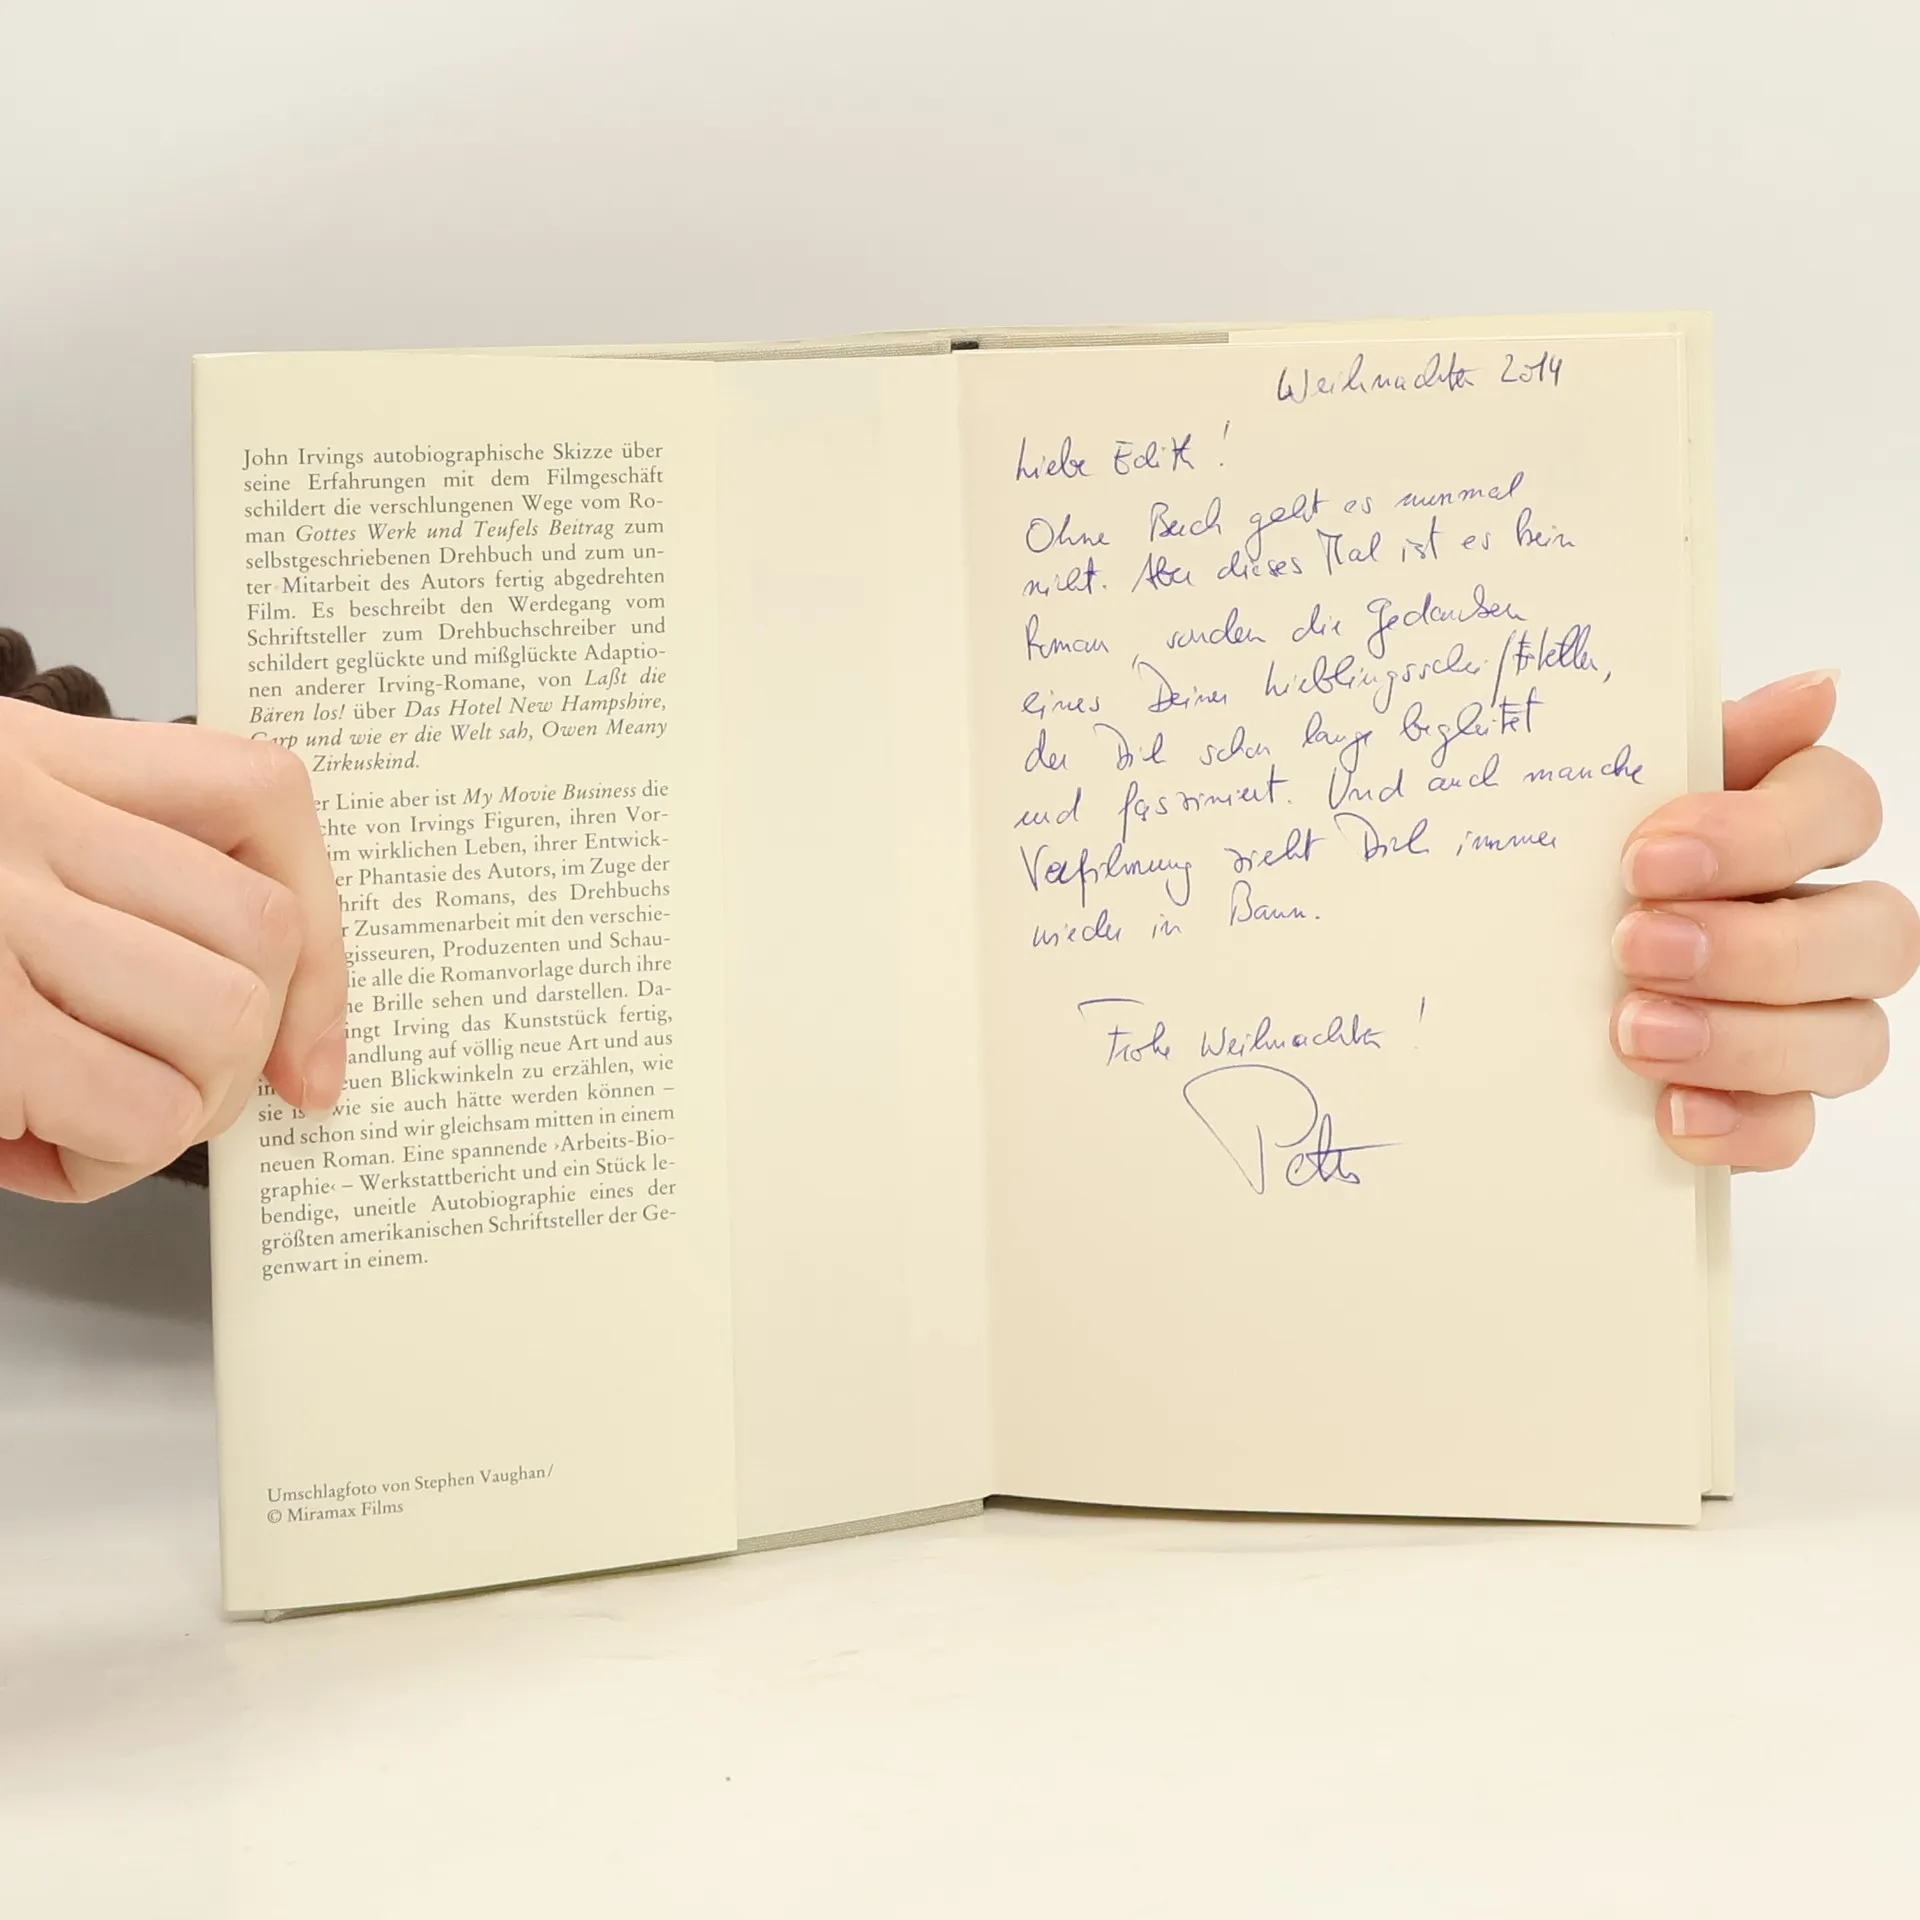 John Irvings autobiographische Skizze über
seine Erfahrungen mit dem Filmgeschäft
schildert die verschlungenen Wege vom Ro-
man Gottes Werk und Teufels Beitrag zum
selbstgeschriebenen Drehbuch und zum un-
ter Mitarbeit des Autors fertig abgedrehten
Film. Es beschreibt den Werdegang vom
Schriftsteller zum Drehbuchschreiber und
schildert geglückte und mißglückte Adaptio-
nen anderer Irving-Romane, von Laßt die
Bären los! über Das Hotel New Hampshire,
Garp und wie er die Welt sah, Owen Meany
Zirkuskind.
er Linie aber ist My Movie Business die
chte von Irvings Figuren, ihren Vor-
im wirklichen Leben, ihrer Entwick-
er Phantasie des Autors, im Zuge der
hrift des Romans, des Drehbuchs
r Zusammenarbeit mit den verschie-
gisseuren, Produzenten und Schau-
lie alle die Romanvorlage durch ihre
ne Brille sehen und darstellen. Da-
ingt Irving das Kunststück fertig,
andlung auf völlig neue Art und aus
in euen Blickwinkeln zu erzählen, wie
sie is wie sie auch hätte werden können –
und schon sind wir gleichsam mitten in einem
neuen Roman. Eine spannende ›Arbeits-Bio-
graphie‹ – Werkstattbericht und ein Stück le-
bendige, uneitle Autobiographie eines der
größten amerikanischen Schriftsteller der Ge-
genwart in einem.
Umschlagfoto von Stephen Vaughan/
© Miramax Films
Weihnachten 2014
Liebe Edith!
Ohne Buch geht es nunmal
nicht. Aber dieses Mal ist es kein
Roman, sondern die Gedanken
eines Deiner Lieblingsschriftsteller,
der Dich schon lange begleitet
und fasziniert. Und auch manche
Verfilmung zieht Dich immer
wieder in Bann.
Frohe Weihnachten!
Peter